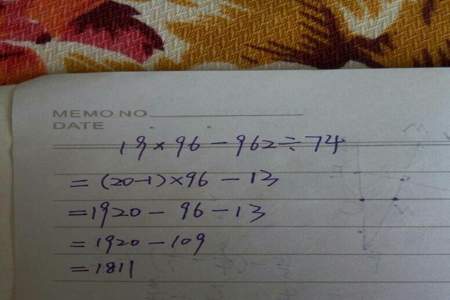 MEMO NO.
DATE
19×96-962÷74
=(20-1)×96-13
=1920-96-13
=1920-109
=1811